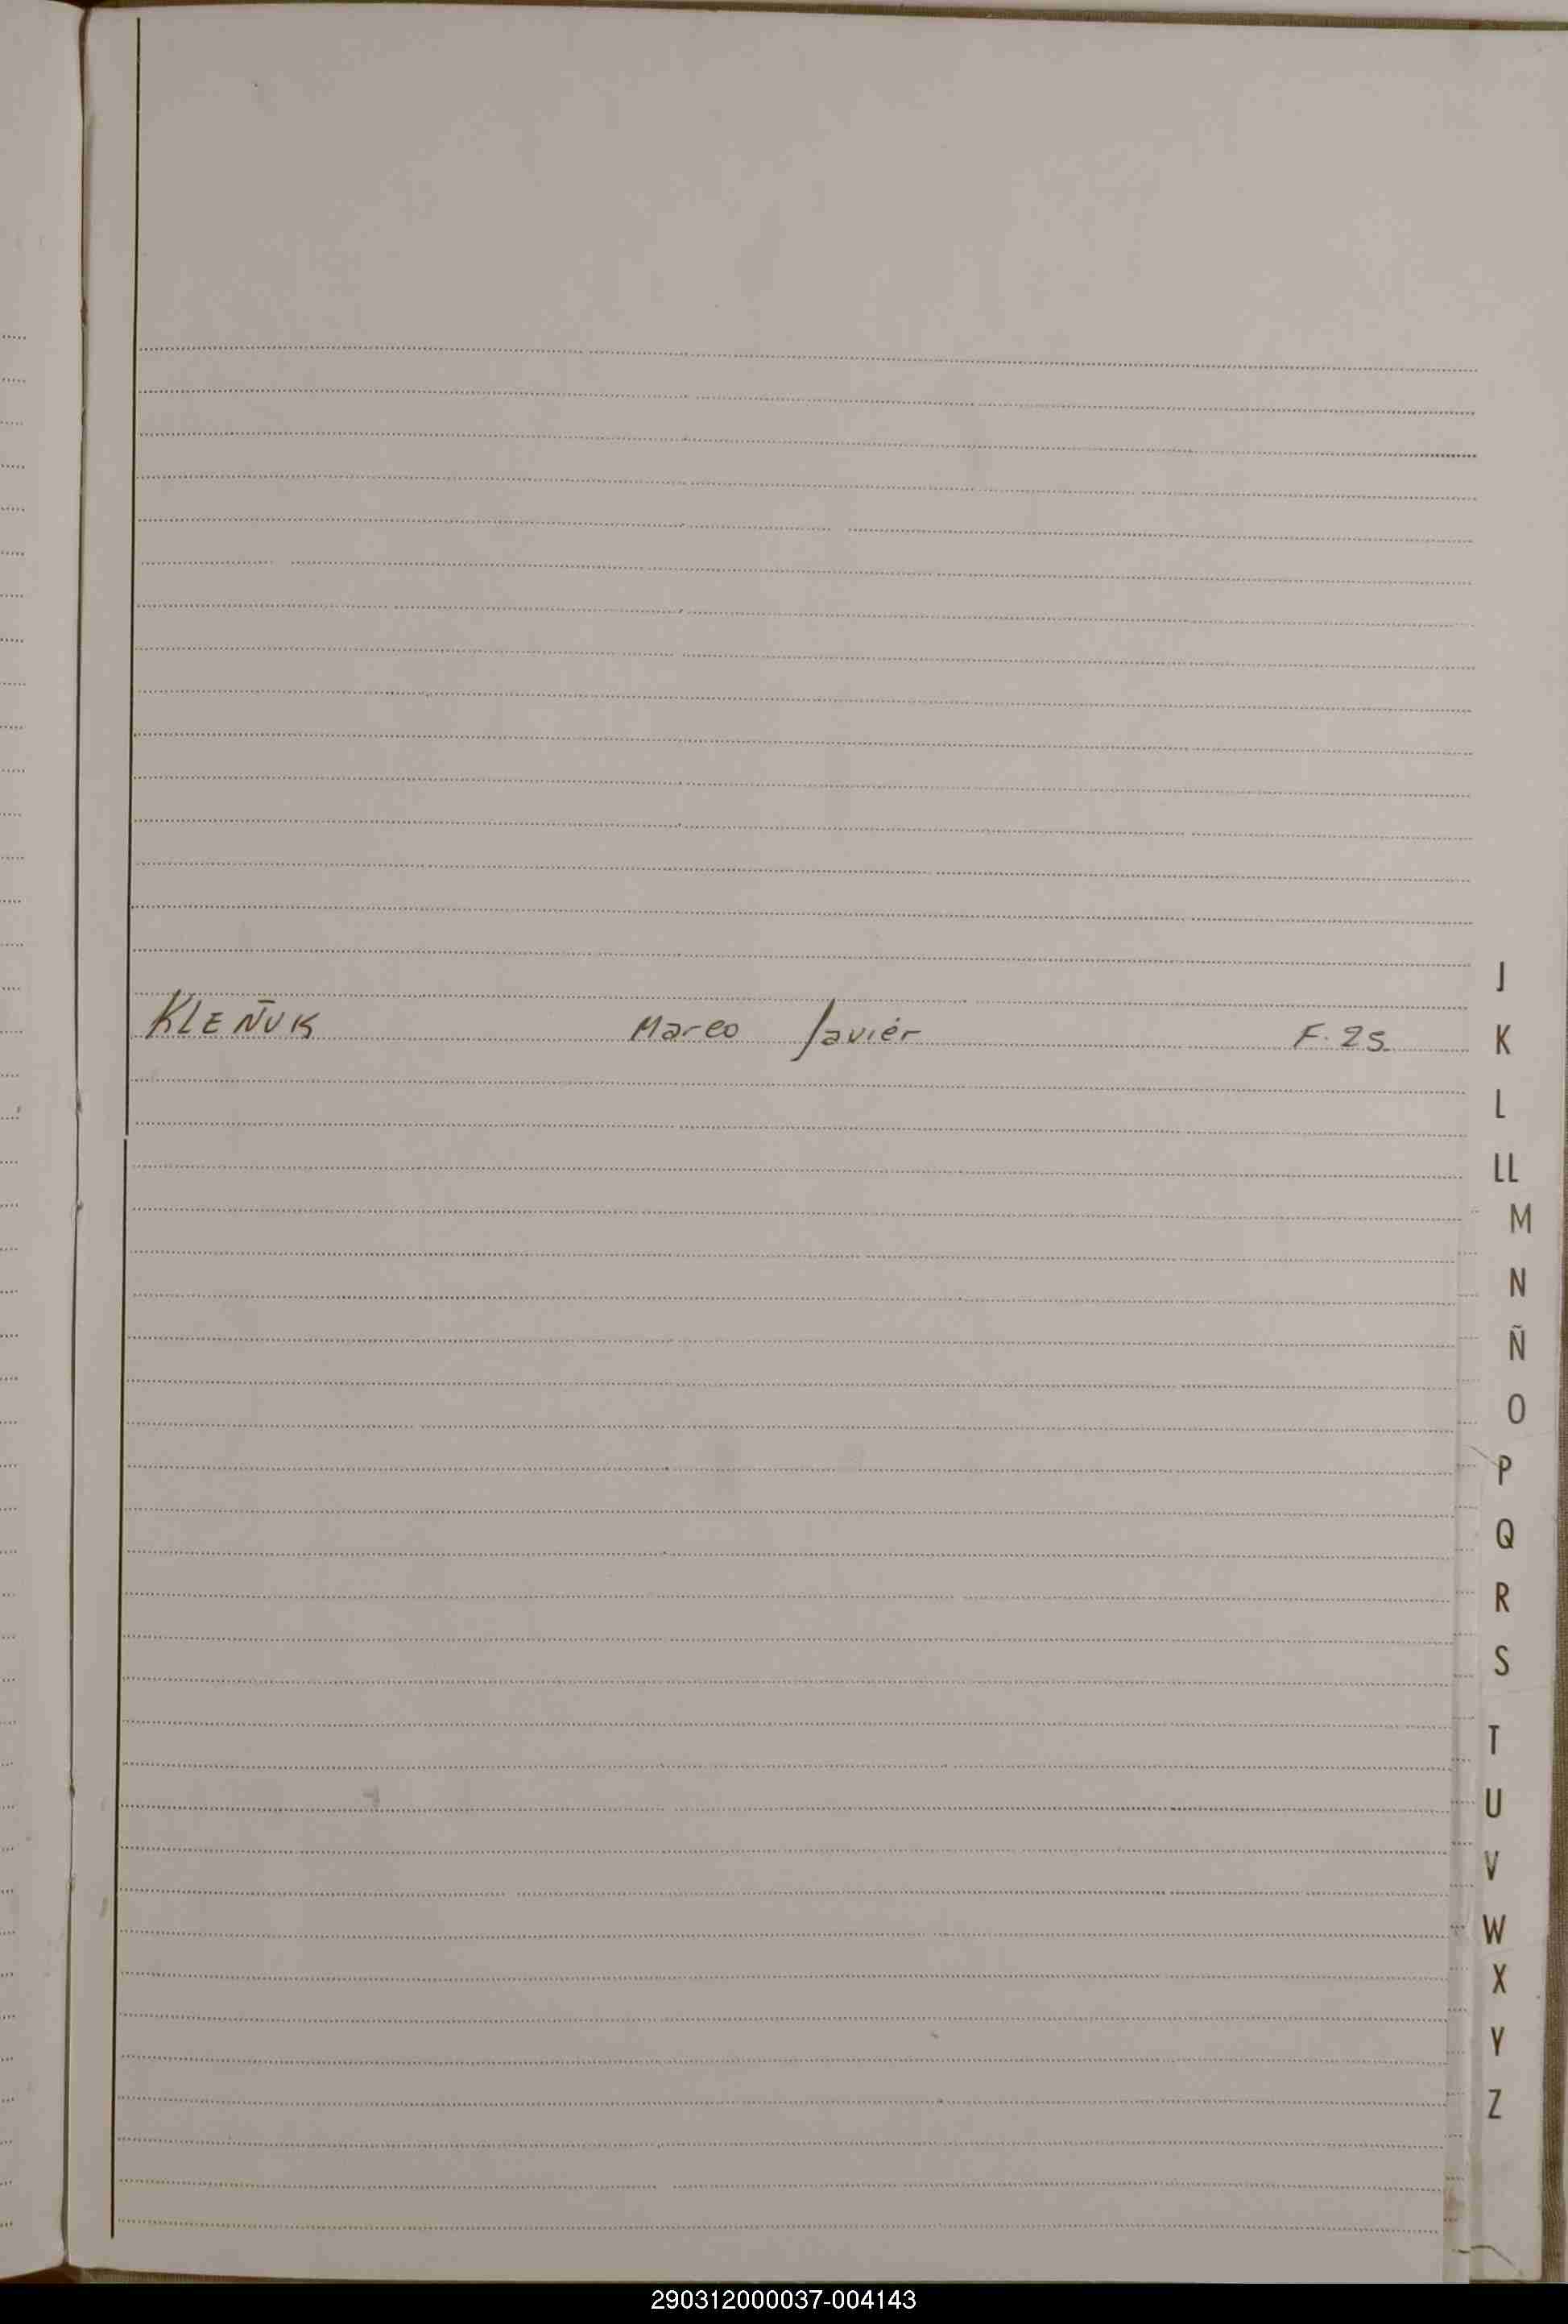 KLEÑUK Marco Javier F. 25
J
K
L
LL
M
N
Ñ
O
P
Q
R
S
T
U
V
W
X
Y
Z
290312000037-004143